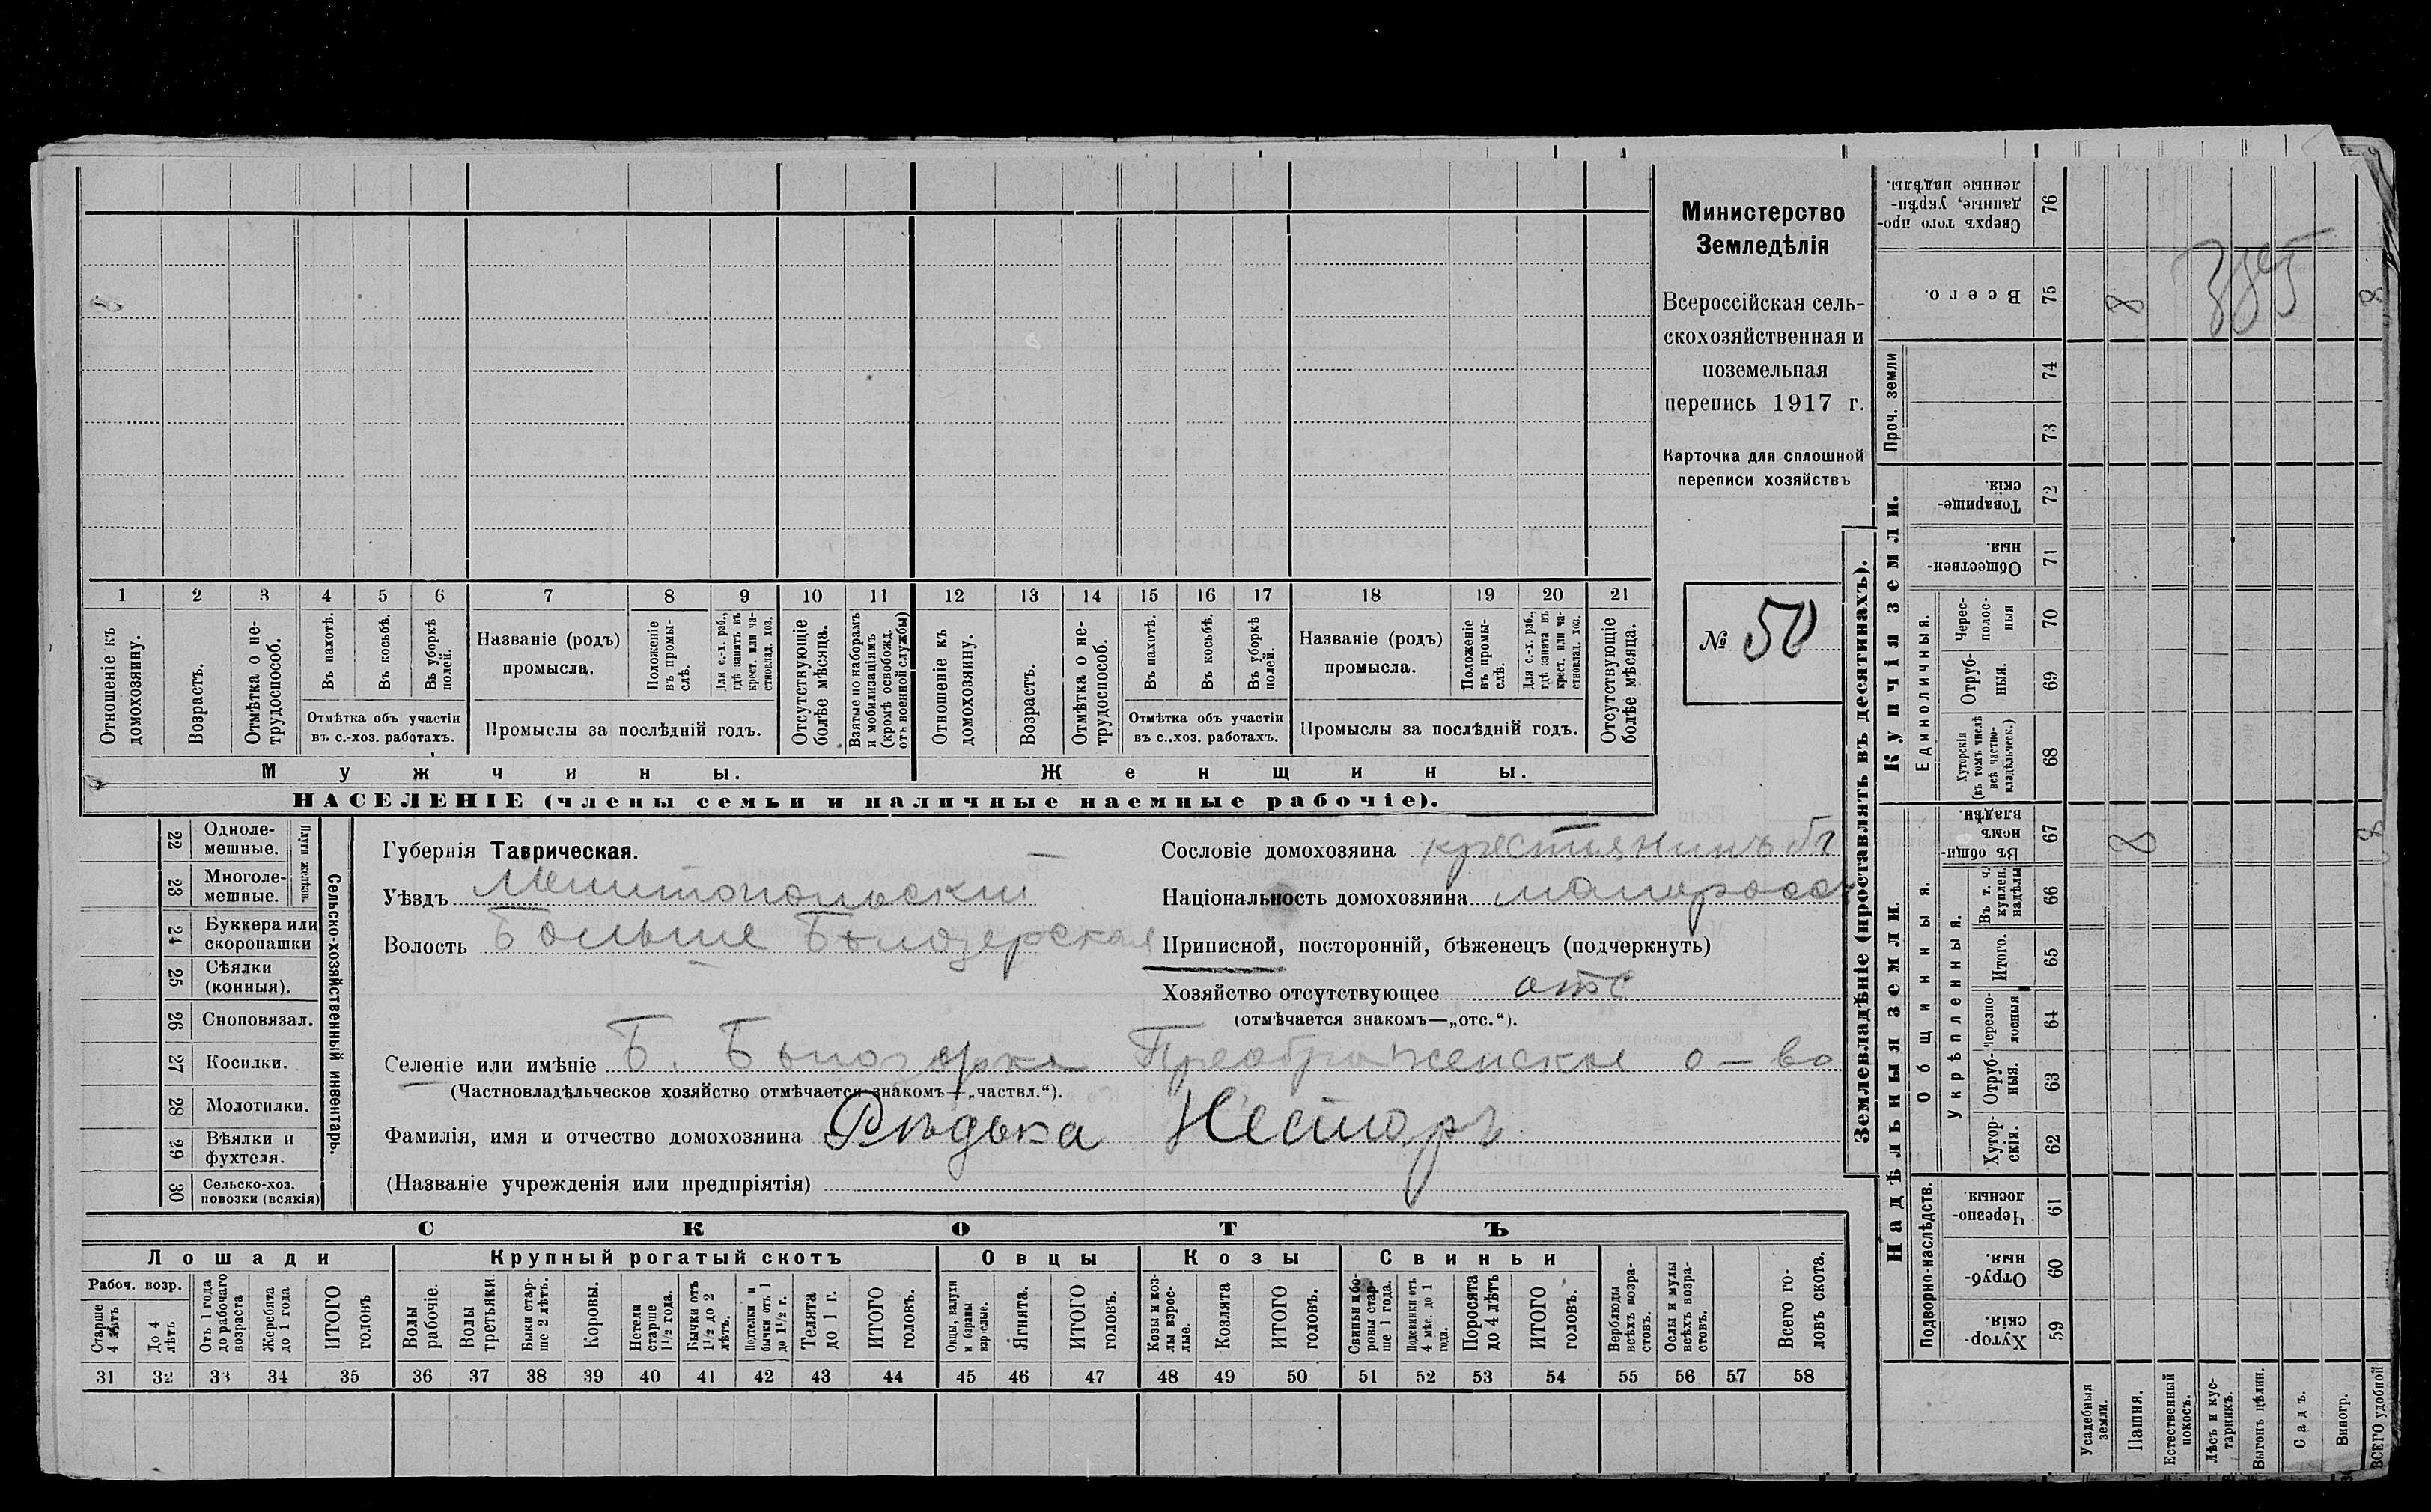 Министерство
Земледѣлія
Всероссійская сель-
скохозяйственная и
поземельная
перепись 1917 г.
Карточка для сплошной
переписи хозяйствъ
№ 50
1 2 3 4 5 6 7 8 9 10 11 12 13 14 15 16 17 18 19 20 21
Отношеніе къ домохозяину.
Возрастъ.
Отмѣтка о не-
трудоспособ.
Въ пахотѣ.
Въ косьбѣ.
Въ уборкѣ полей.
Отмѣтка объ участіи
въ с.-хоз. работахъ.
Названіе (родъ)
промысла.
Положеніе
въ промы-
слѣ.
Для с.-х. раб.,
гдѣ занятъ въ
крест. или ча-
стновлад. хоз.
Промыслы за послѣдній годъ.
Отсутствующіе
болѣе мѣсяца.
Взятые по наборамъ
и мобилизаціямъ
(кромѣ освобожд.
отъ военной службы)
Отношеніе къ
домохозяину.
Возрастъ.
Отмѣтка о не-
трудоспособ.
Въ пахотѣ.
Въ косьбѣ.
Въ уборкѣ
полей.
Отмѣтка объ участіи
въ с.-хоз. работахъ.
Названіе (родъ)
промысла.
Положеніе
въ промы-
слѣ.
Для с.-х. раб.,
гдѣ занята въ
крест. или ча-
стновлад. хоз.
Промыслы за послѣдній годъ.
Отсутствующіе
болѣе мѣсяца.
Мужчины.
Женщины.
НАСЕЛЕНІЕ (члены семьи и наличные наемные рабочіе).
22 Одноле-
мешные.
23 Многоле-
мешные.
Плуги желѣзн.
24 Буккера или
скоропашки
25 Сѣялки
(конныя).
26 Сноповязал.
27 Косилки.
28 Молотилки.
29 Вѣялки и
фухтеля.
30 Сельско-хоз.
повозки (всякія)
Сельско-хозяйственный инвентарь.
Губернія Таврическая.
Уѣздъ Мелитопольскій
Волость Больше Бѣлозерская
Сословіе домохозяина крестьянинъ
Національность домохозяина малоросс
Приписной, посторонній, бѣженецъ (подчеркнуть)
Хозяйство отсутствующее отс
(отмѣчается знакомъ—„отс.“).
Селеніе или имѣніе Б. Бѣлозерка Преображенское о-во
(Частновладѣльческое хозяйство отмѣчается знакомъ—„частвл.“).
Фамилія, имя и отчество домохозяина Рѣдька Несторъ
(Названіе учрежденія или предпріятія)
СКОТЪ
Лошади
Крупный рогатый скотъ
Овцы
Козы
Свиньи
Рабоч. возр.
Старше
4 лѣтъ
До 4
лѣтъ
Отъ 1 года
до рабочаго
возраста
Жеребята
до 1 года
ИТОГО
головъ
Волы
рабочіе.
Волы
третьяки.
Быки стар-
ше 2 лѣтъ.
Коровы.
Нетели
старше
1½ года.
Бычки отъ
1½ до 2
лѣтъ.
Подтелки и
бычки отъ 1
до 1½ г.
Телята
до 1 г.
ИТОГО
головъ.
Овцы, валухи
и бараны
взрослые.
Ягнята.
ИТОГО
головъ.
Козы и коз-
лы взрос-
лые.
Козлята
ИТОГО
головъ.
Свиньи и бо-
ровы стар-
ше 1 года.
Подсвинки отъ
4 мѣс. до 1
года.
Поросята
до 4 лѣтъ
ИТОГО
головъ.
Верблюды
всѣхъ возра-
стовъ.
Ослы и мулы
всѣхъ возра-
стовъ.
Всего го-
ловъ скота.
31 32 33 34 35 36 37 38 39 40 41 42 43 44 45 46 47 48 49 50 51 52 53 54 55 56 57 58
Землевладѣніе (проставлять въ десятинахъ).
Надѣльныя земли.
Купчія земли.
Проч. земли
Подворно-наслѣдств.
Общинныя.
Укрѣпленныя.
Единоличныя.
Сверхъ того про-
данные, укрѣп-
ленные надѣлы.
76
Всего.
75 8 385 8
74
73
Товарище-
скія.
72
Обществен-
ныя.
71
Черес-
полос-
ныя
70
Отруб-
ныя.
69
Хуторскія
(въ томъ числѣ
всѣ частно-
владѣльческ.)
68
Въ общин-
номъ
владѣн.
67 8 8
Въ т. ч.
куплен.
надѣлы
66
Итого.
65
Черезпо-
лосныя
64
Отруб-
ныя.
63
Хутор-
скія.
62
Черезпо-
лосныя.
61
Отруб-
ныя.
60
Хутор-
скія.
59
Усадебныя
земли.
Пашня.
Естественный
покосъ.
Лѣсъ и кус-
тарникъ.
Выгонъ цѣлин.
Садъ.
Виногр.
ВСЕГО удобной